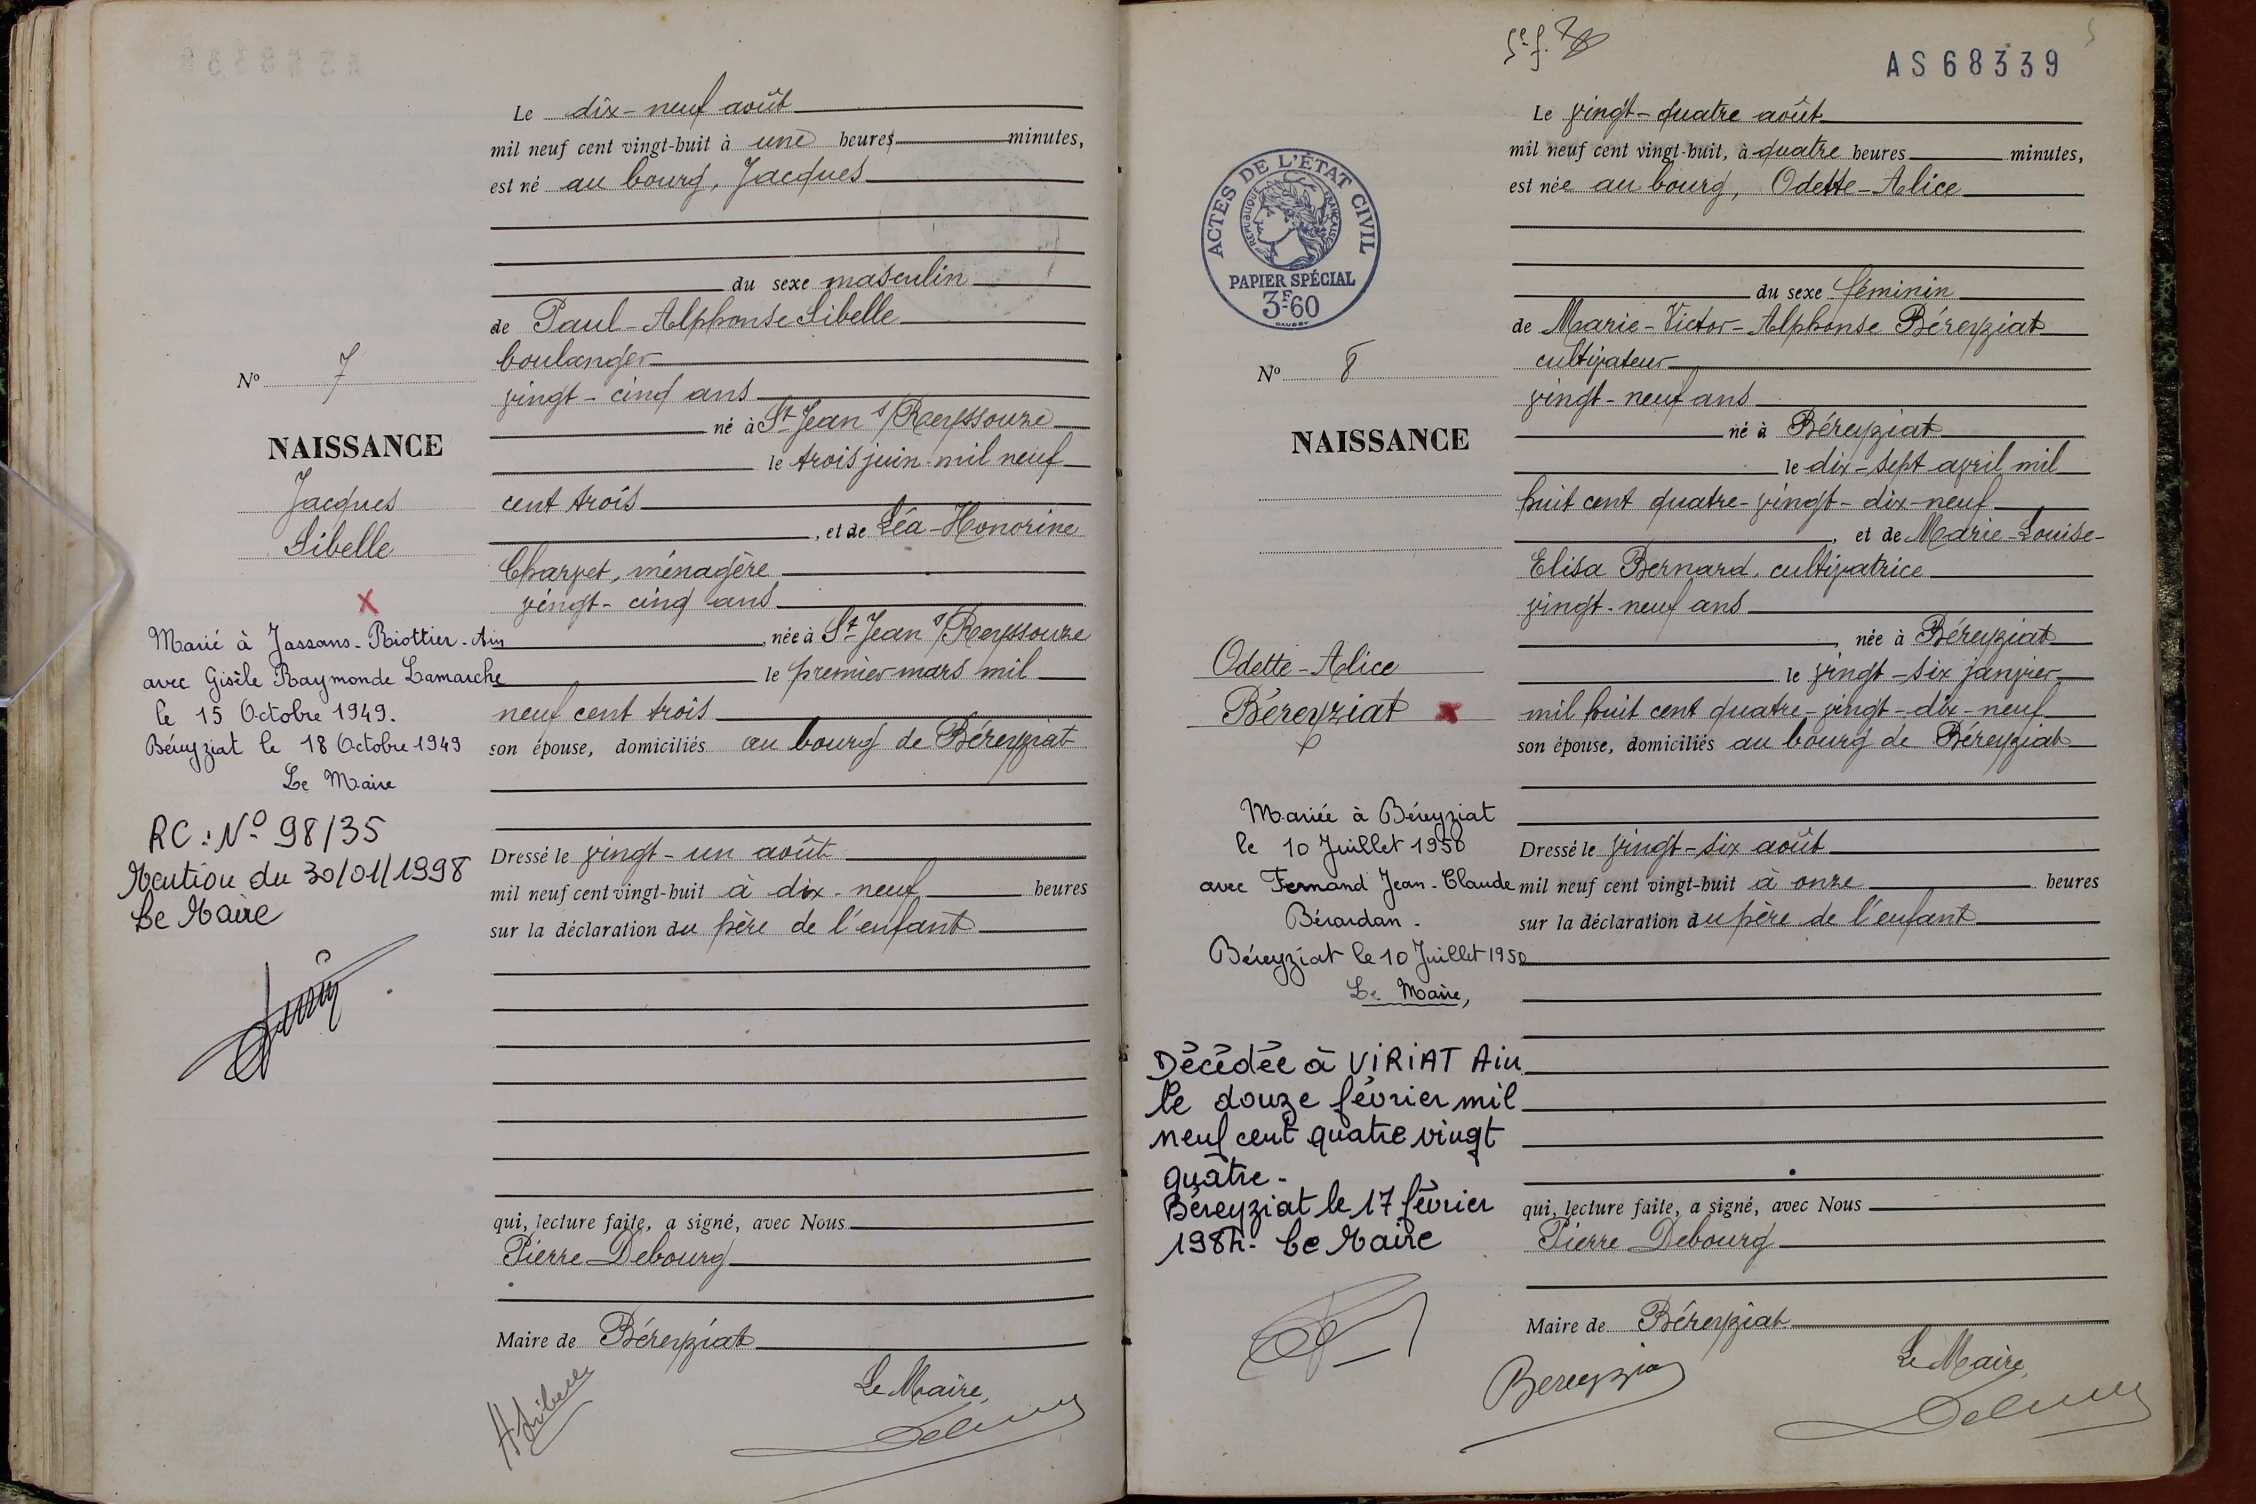 Le dix-neuf août
mil neuf cent vingt-huit à une heures minutes,
est né au bourg, Jacques
du sexe masculin
de Paul-Alphonse Sibelle
boulanger
vingt-cinq ans
né à St Jean s/Reyssouze
le trois juin mil neuf
cent trois
, et de Léa-Honorine
Charvet, ménagère
vingt-cinq ans
, née à St Jean s/Reyssouze
le premier mars mil
neuf cent trois
son épouse, domiciliés au bourg de Béreyziat
Dressé le vingt-un août
mil neuf cent vingt-huit à dix-neuf heures
sur la déclaration du père de l'enfant
qui, lecture faite, a signé, avec Nous
Pierre Debourg
Maire de Béreyziat
Le Maire,
No 7
NAISSANCE
Jacques
Sibelle
X
Marié à Jassans-Riottier-Ain
avec Gisèle Raymonde Lamarche
le 15 Octobre 1949.
Béreyziat le 18 Octobre 1949
Le Maire
RC : No 98/35
Mention du 30/01/1998
Le Maire
AS68339
5
Le vingt-quatre août
mil neuf cent vingt-huit, à quatre heures minutes,
est née au bourg, Odette-Alice
du sexe féminin
de Marie-Victor-Alphonse Béreyziat
cultivateur
vingt-neuf ans
né à Béreyziat
le dix-sept avril mil
huit cent quatre-vingt-dix-neuf
, et de Marie-Louise-
Elisa Bernard, cultivatrice
vingt-neuf ans
, née à Béreyziat
le vingt-six janvier
mil huit cent quatre-vingt-dix-neuf
son épouse, domiciliés au bourg de Béreyziat
Dressé le vingt-six août
mil neuf cent vingt-huit à onze heures
sur la déclaration du père de l'enfant
qui, lecture faite, a signé, avec Nous
Pierre Debourg
Maire de Béreyziat
Le Maire,
Bereyziat
ACTES DE L'ÉTAT CIVIL
RÉPUBLIQUE FRANÇAISE
PAPIER SPÉCIAL
3F60
No 8
NAISSANCE
Odette-Alice
Béreyziat x
Mariée à Béreyziat
le 10 Juillet 1950
avec Fernand Jean-Claude
Bérardan.
Béreyziat le 10 Juillet 1950
Le Maire,
Décédée à VIRIAT Ain
le douze février mil
neuf cent quatre vingt
quatre-
Béreyziat le 17 février
1984- Le Maire